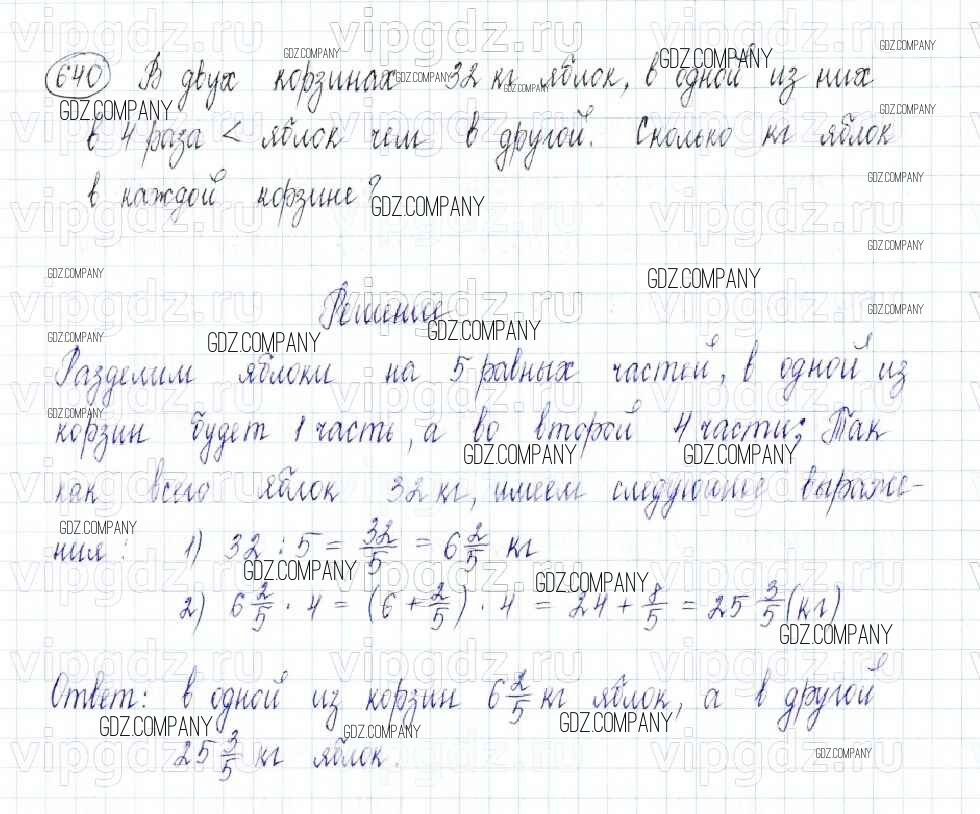 640 В двух корзинах 32 кг яблок, в одной из них
в 4 раза < яблок чем в другой. Сколько кг яблок
в каждой корзине?
Решение
Разделим яблоки на 5 равных частей, в одной из
корзин будет 1 часть, а во второй 4 части; Так
как всего яблок 32 кг, имеем следующие выраже-
ния: 1) 32 : 5 = 32/5 = 6 2/5 кг
2) 6 2/5 · 4 = (6 + 2/5) · 4 = 24 + 8/5 = 25 3/5 (кг)
Ответ: в одной из корзин 6 2/5 кг яблок, а в другой
25 3/5 кг яблок.
vipgdz.ru
GDZ.COMPANY